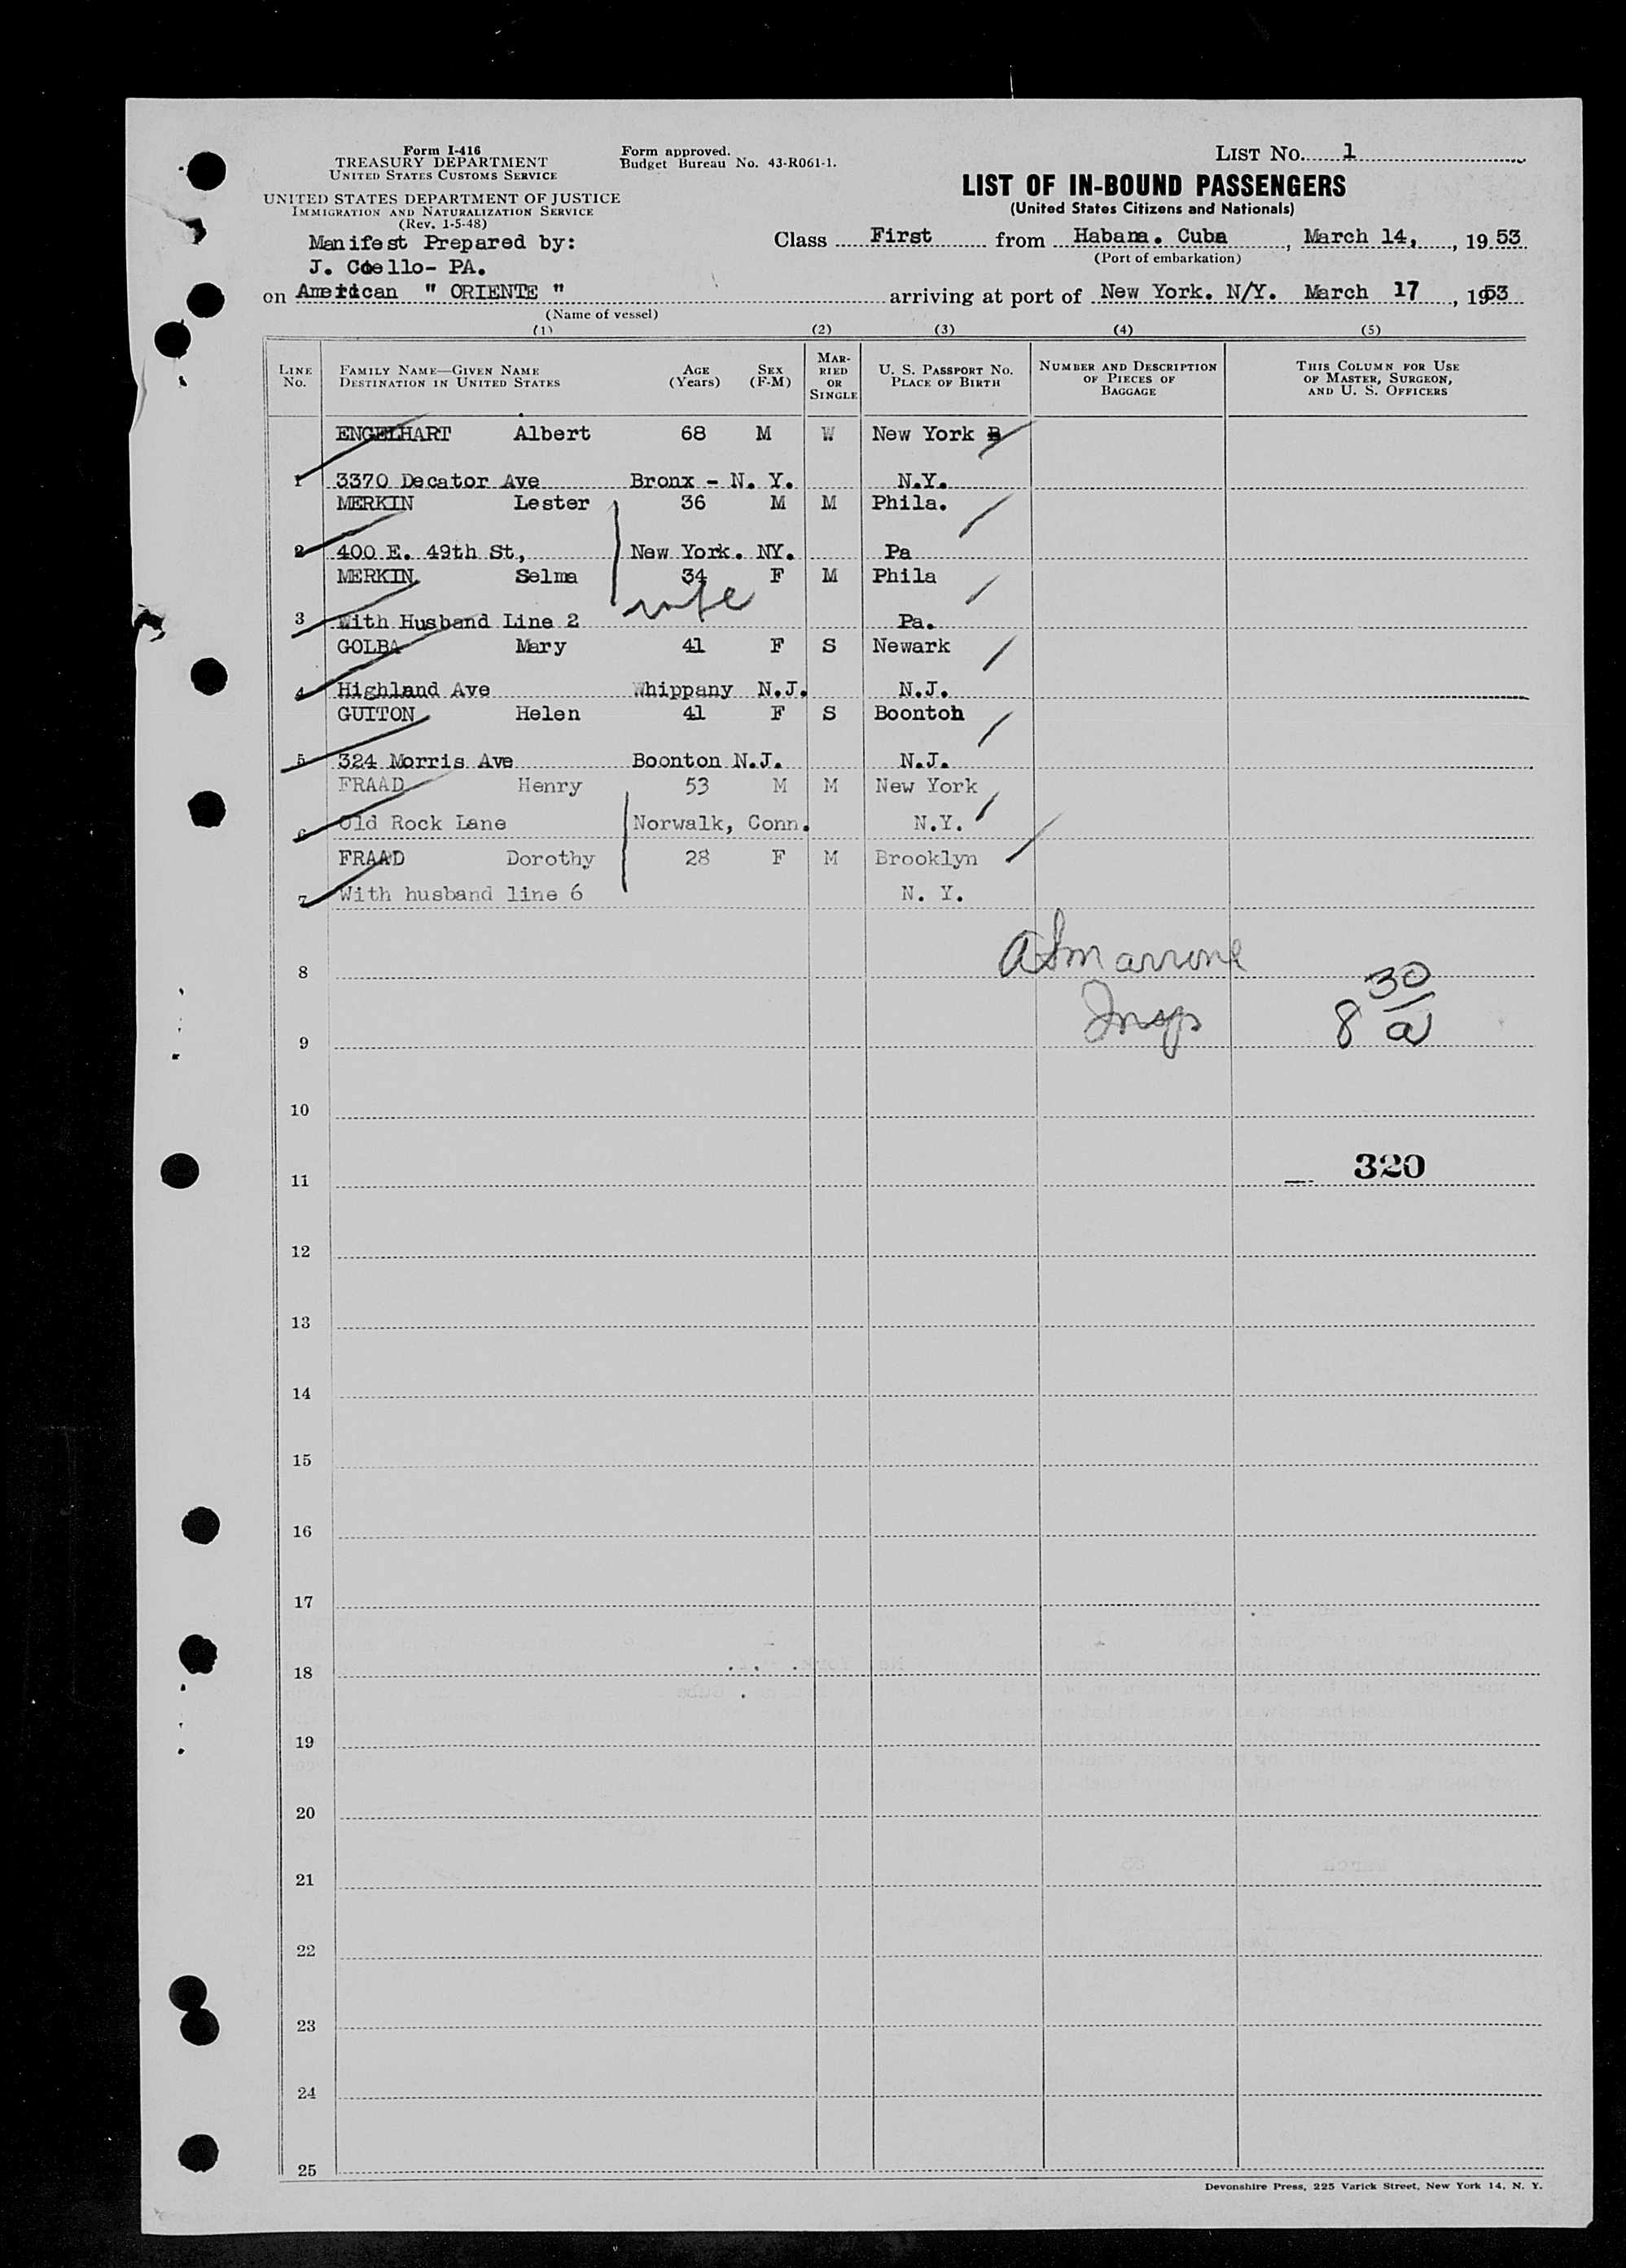 Form I-416
TREASURY DEPARTMENT
UNITED STATES CUSTOMS SERVICE
UNITED STATES DEPARTMENT OF JUSTICE
IMMIGRATION AND NATURALIZATION SERVICE
(Rev. 1-5-48)
Form approved.
Budget Bureau No. 43-R061-1.
LIST No. 1
LIST OF IN-BOUND PASSENGERS
(United States Citizens and Nationals)
Manifest Prepared by:
J. Coello- PA.
Class First from Habana. Cuba, March 14, , 19 53
(Port of embarkation)
on American " ORIENTE " arriving at port of New York. N/Y. March 17 , 1953
(Name of vessel)
(1) (2) (3) (4) (5)
LINE No.
FAMILY NAME—GIVEN NAME
DESTINATION IN UNITED STATES
AGE (Years)
SEX (F-M)
MARRIED OR SINGLE
U. S. PASSPORT No.
PLACE OF BIRTH
NUMBER AND DESCRIPTION OF PIECES OF BAGGAGE
THIS COLUMN FOR USE OF MASTER, SURGEON, AND U. S. OFFICERS
ENGELHART Albert 68 M W New York
1 3370 Decator Ave Bronx - N. Y. N.Y.
MERKIN Lester 36 M M Phila.
2 400 E. 49th St, New York. NY. Pa
MERKIN Selma 34 F M Phila
wife
3 With Husband Line 2 Pa.
GOLBA Mary 41 F S Newark
4 Highland Ave Whippany N.J. N.J.
GUITON Helen 41 F S Boonton
5 324 Morris Ave Boonton N.J. N.J.
FRAAD Henry 53 M M New York
6 Old Rock Lane Norwalk, Conn. N.Y.
FRAAD Dorothy 28 F M Brooklyn
7 With husband line 6 N. Y.
8
Insp 8 30/a
9
10
320
11
12
13
14
15
16
17
18
19
20
21
22
23
24
25
Devonshire Press, 225 Varick Street, New York 14, N. Y.